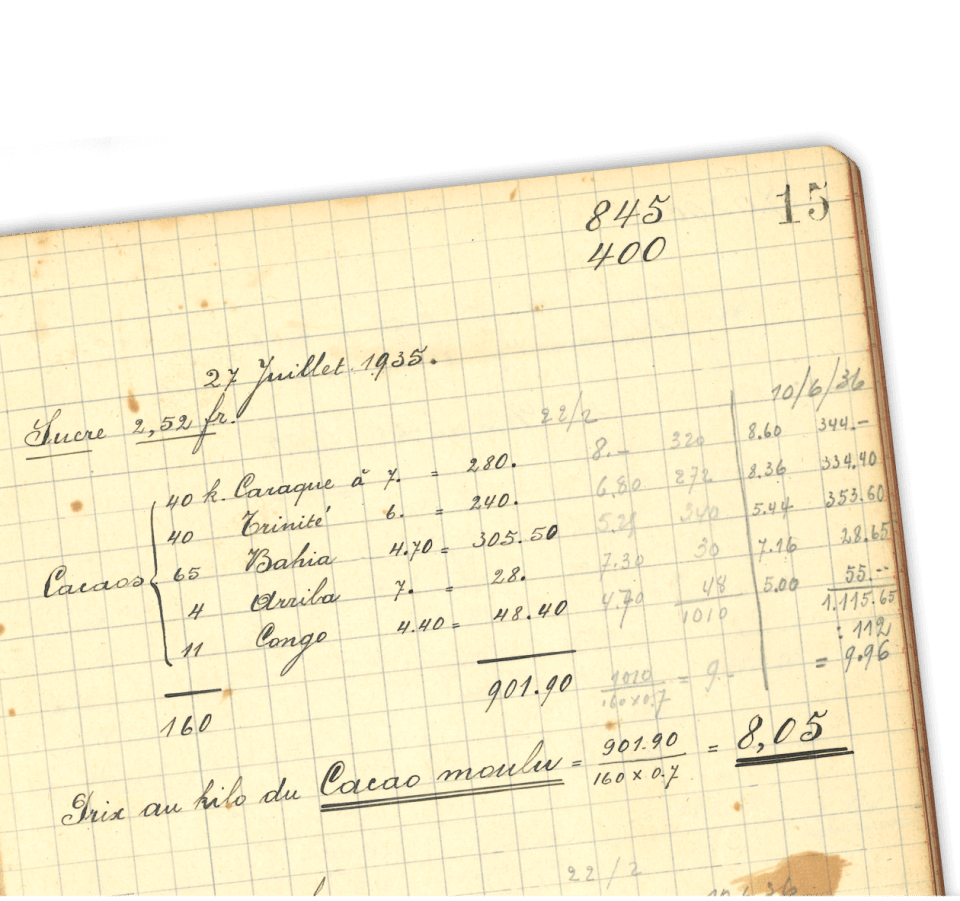 845 15
400
27 Juillet 1935.
Sucre 2,52 fr. 22/2 10/6/36
40 k. Caraque à 7. = 280. 8.- 320 8.60 344.-
40 Trinité 6. = 240. 6.80 272 8.36 334.40
Cacaos 65 Bahia 4.70 = 305.50 340 5.44 353.60
4 Arriba 7. = 28. 7.30 30 7.16 28.65
11 Congo 4.40 = 48.40 48 5.00 55.--
1010 1.115.65
: 112
160 901.90 1010 / 160 x 0.7 = 9.- = 9.96
Prix au kilo du Cacao moulu = 901.90 / 160 x 0.7 = 8,05
22/2